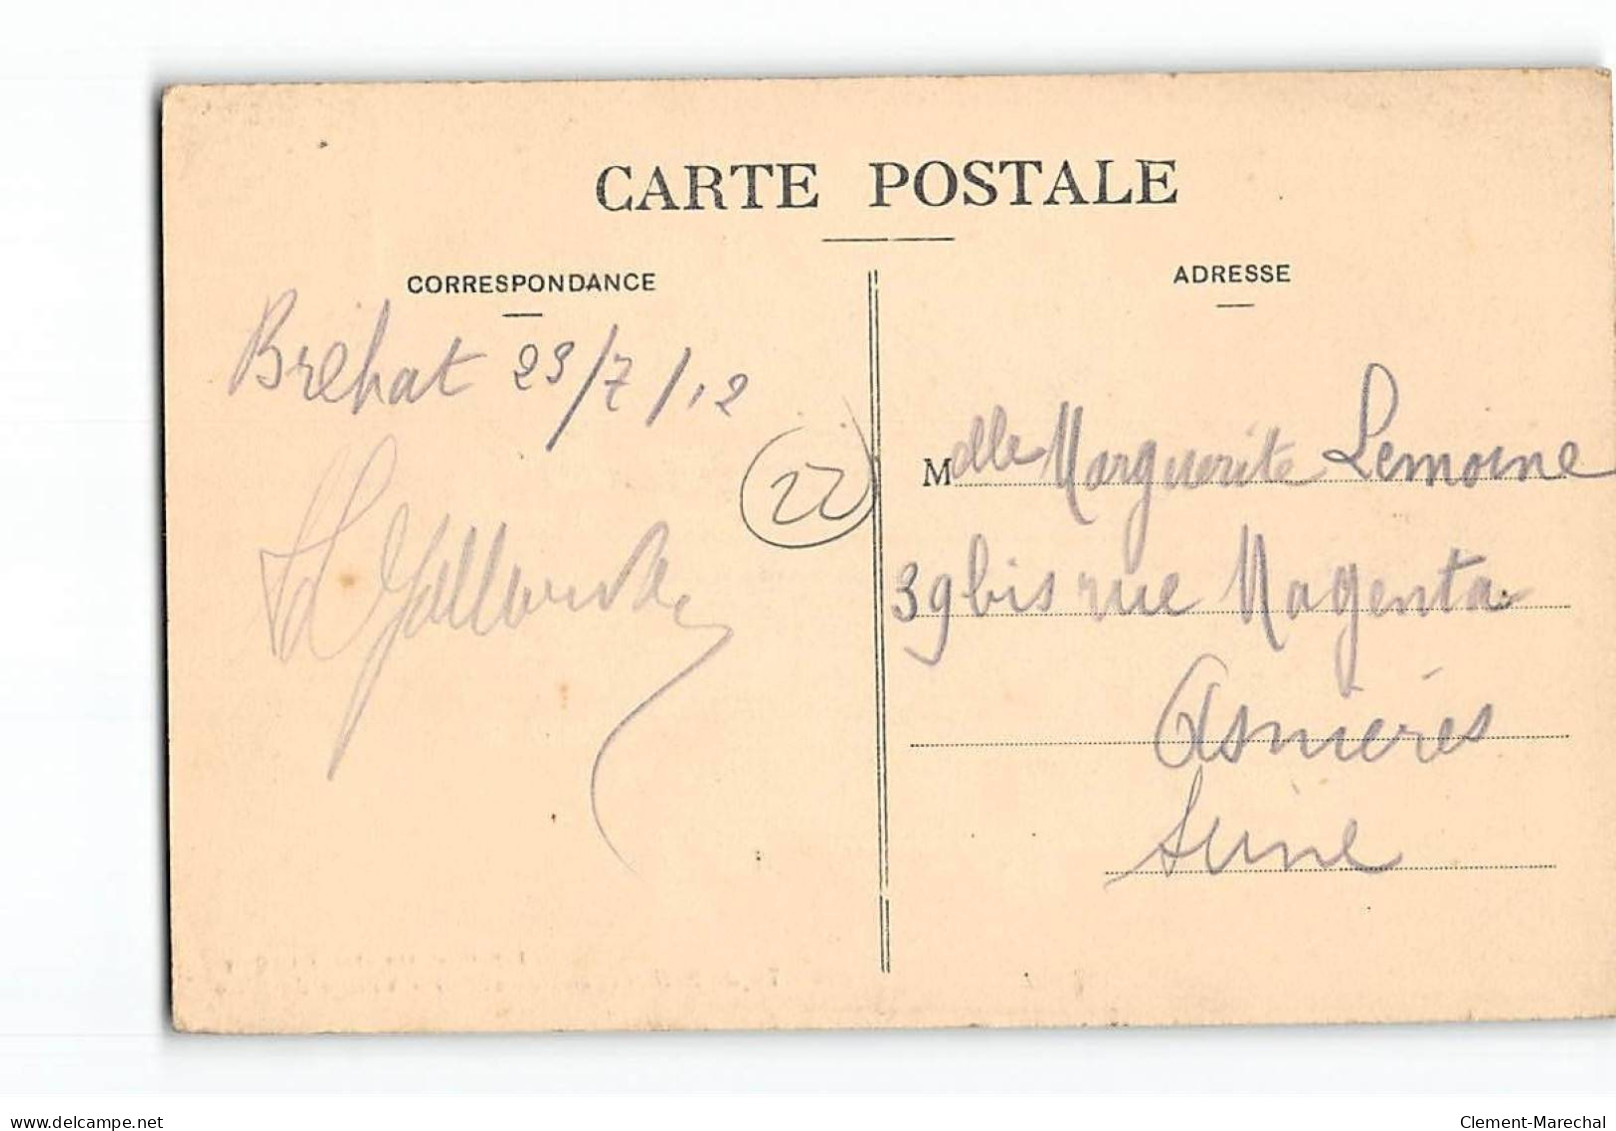 CARTE POSTALE
CORRESPONDANCE
ADRESSE
Bréhat 23/7/12
22
Mdlle Marguerite Lemoine
39 bis rue Magenta
Asnières
Seine
www.delcampe.net
Clement-Marechal